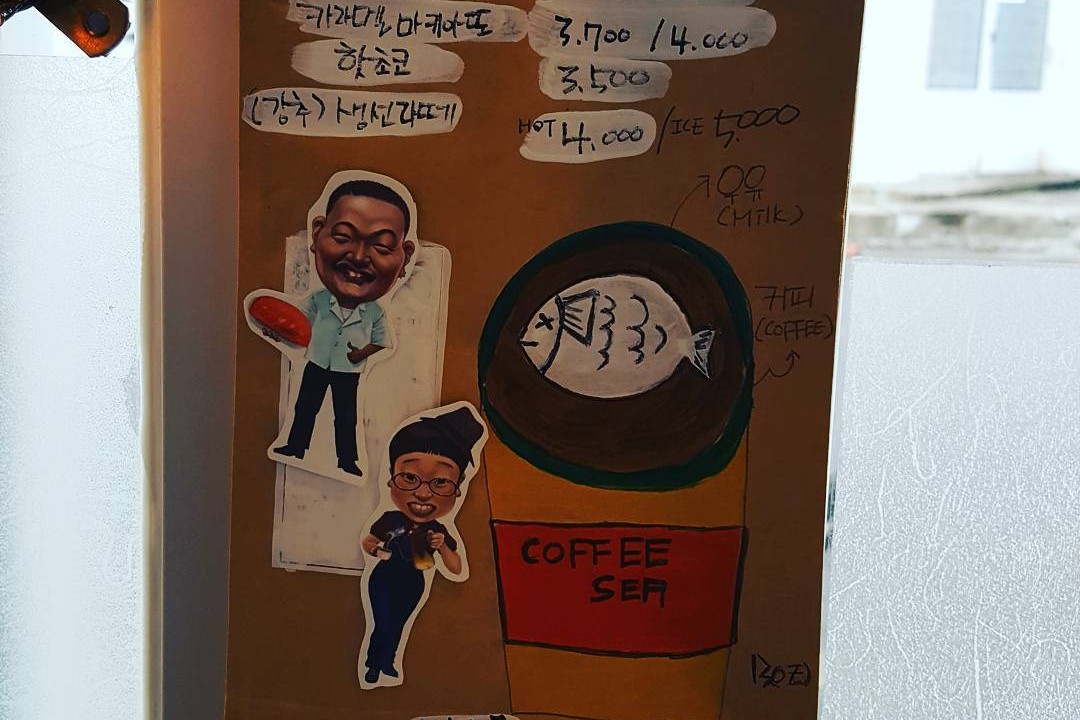 카라멜 마케아또 3.700 / 4.000
핫초코 3.500
(강추) 생선라떼 HOT 4.000 / ICE 5.000
우유
(MilK)
커피
(COFFEE)
COFFEE
SEA